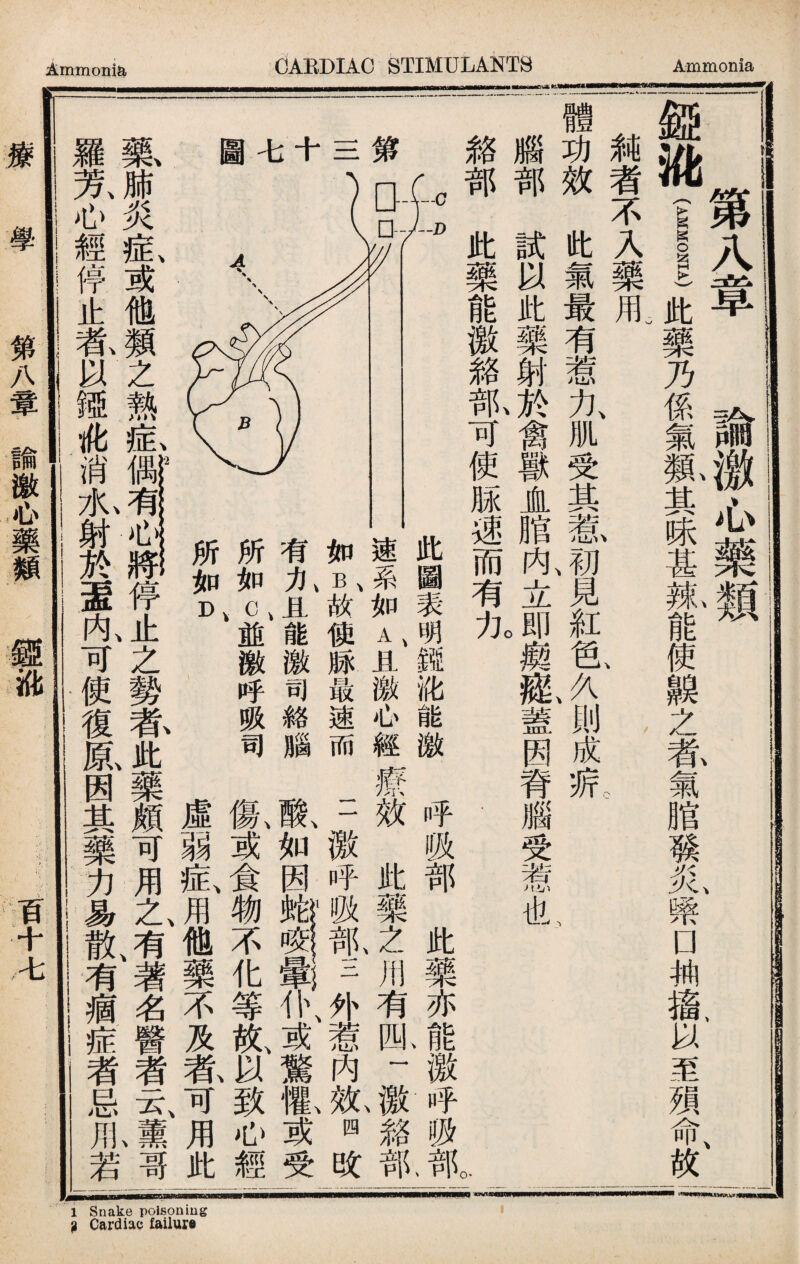 Ammonia
CARDIAC STIMULANTS
Ammonia
第八章 論激心藥類
錏𣱛(AMMONIA)此藥乃係氣類、其味甚辣、能使齅之者、氣脂發炎、槼口抽搐、以至殞命、故
純者不入藥用。
體功效 此氣最有惹力、肌受其惹、初見紅色、久則成疥。
腦部 試以此藥射於禽獸血脂內、立即瘈瘲、蓋因脊腦受惹也、
絡部 此藥能激絡部、可使脉速而有力。
第三十七圖
A
B
C
D
此圖表明錏𣱛能激
速系如A、且激心經
如B、故使脉最速而
有力、且能激司絡腦
所如C、並激呼吸司
所如D、
呼吸部 此藥亦能激呼吸部。
療效 此藥之用有四、一激絡部、
二激呼吸部、三外惹內效、四改
酸、如因蛇咬暈1仆、或驚懼、或受
傷、或食物不化等故、以致心經
虛弱症、用他藥不及者、可用此
藥、肺炎症、或他類之熱症、偶有心將2停止之勢者、此藥頗可用之、有著名醫者云、薰哥
羅芳、心經停止者、以錏𣱛消水、射於衁內、可使復原、因其藥力易散、有痼症者忌用、若
1 Snake poisoning
2 Cardiac failure
療學 第八章 論激心藥類 錏𣱛 百十七